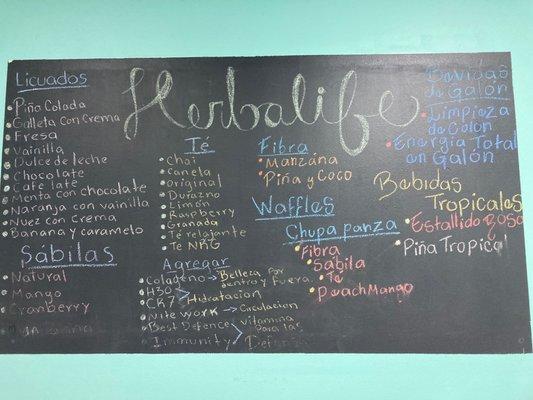 Herbalife
Licuados
Piña Colada
Galleta con Crema
Fresa
Vainilla
Dulce de leche
Chocolate
Cafe late
Menta con chocolate
Naranja con vainilla
Nuez con Crema
Banana y caramelo
Sábilas
Natural
Mango
Cranberry
Té
Chai
Canela
Original
Durazno
Limón
Raspberry
Granada
Té relajante
Te NRG
Agregar
Colageno → Belleza por
dentro y fuera
H3O
CR7 Hidratacion
Nite work → Circulacion
Best Defence vitamina
para las
Immunity Defensa
Fibra
Manzana
Piña y Coco
Waffles
Chupa panza
Fibra
Sabila
Te
Peach Mango
Bevidas
de Galón
Limpieza
de Colon
Energía Total
en Galón
Bebidas
Tropicales
Estallido Rosa
Piña Tropical